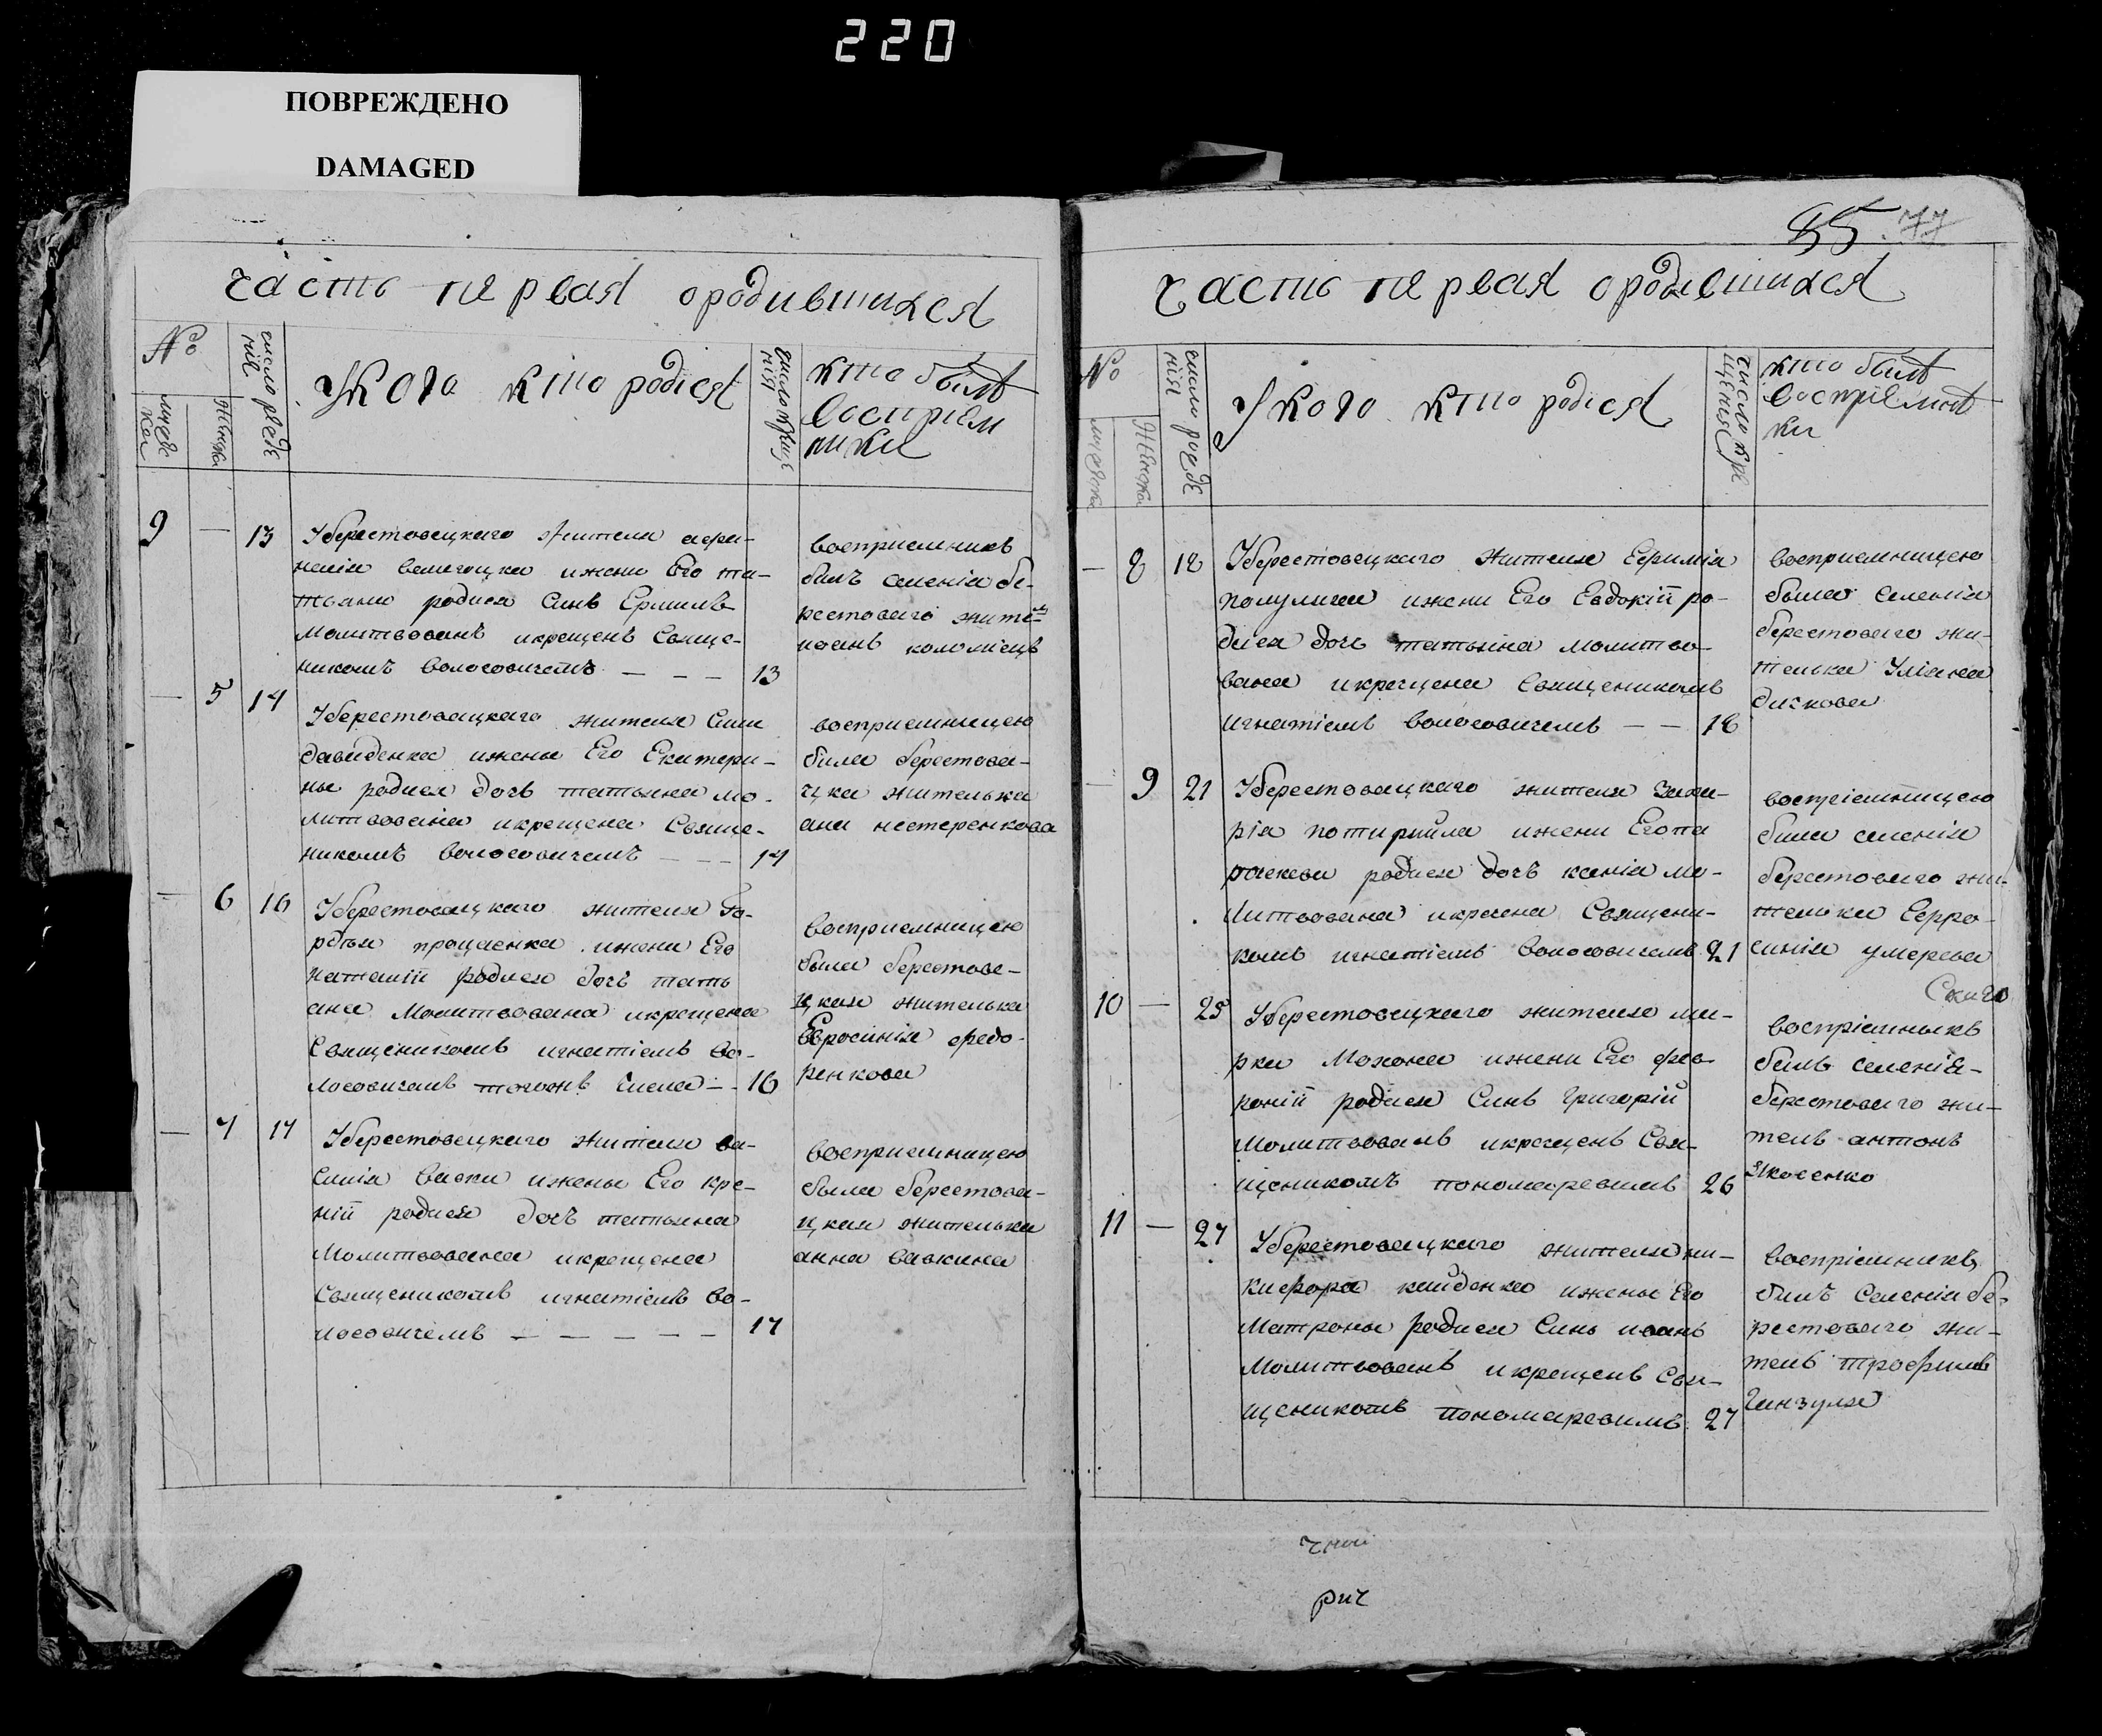 220
ПОВРЕЖДЕНО
DAMAGED
часть первая ородившихся
№
мужеска
Женска
число рожде
нія
Укого кто родiся
число креще
нія
кто былъ
воспріем
ники
9 — 13 Уберестовецкаго жителя афа-
насія ижени Его та-
тьяни родися Синъ Ермилъ
Молитвованъ икрещенъ Свяще-
никомъ волосовичемъ — — — 13
восприемникъ
билъ селенія бе-
рестового жите-
иоанъ коломіецъ
— 5 14 Уберестовецкаго жителя Сави
давиденка ижены Его Екатери-
ны родися дочъ татьяна мо-
литвована икрещена Свяще-
никомъ волосовичемъ — — — 14
восприемницею
била берестове-
цка жителька
ана нестеренкова
— 6 16 Уберестовецкаго жителя Го-
рдѣя проценка ижени Его
наталій родися дочъ тать
ана Молитвована икрещена
Священикомъ игнатіемъ во-
лосовичемъ тогожъ числа — 16
восприемницею
была берестове-
цкая жителька
Евросинія федо-
ренкова
— 7 17 Уберестовецкаго жителя ва-
силія вивки ижены Его
ній родися дочъ татьяна
Молитвована икрещена
Священикомъ игнатіемъ во-
лосовичемъ — — — — — 17
восприемницею
была берестове-
цкая жителька
анна савкина
85. 77
часть первая ородившихся
№
мужеска
Женска
число рожде
нія
Укого кто родiся
число кре
щенія
кто былъ
воспріемни
ки
— 8 18 Уберестовецкаго жителя Ефимія
ижени Его Евдокій ро-
дися дочь татьяна молитво-
вана икрещена Священикомъ
игнатіемъ волосовичемъ — — 18
восприемницею
была Селенія
берестоваго жи-
телька Уліяна
дискова
— 9 21 Уберестовецкаго жителя Заха-
рія потирайла ижени Его па
раскеви родися дочъ ксенія мо-
литвована икрещена Священи-
комъ игнатіемъ волосовичемъ 21
воспріемницею
била селенія
берестоваго жи-
телька Ефро-
синія умерева
10 — 25 Уберестовецкаго жителя ма-
рка Мохона ижени Его фев-
роній родися Синъ Григорій
Молитвованъ икрещенъ Свя-
щеникомъ пономаревимъ 26
воспріемникъ
билъ селенія-
берестоваго жи-
тель антонъ
Яковенко
11 — 27 Уберестовецкаго жителя ни-
кифора кайденка ижены Его
Матроны родися Синъ иоанъ
Молитвованъ икрещенъ Свя-
щеникомъ пономаревимъ 27
воспріемникъ
билъ Селенія бе-
рестоваго жи-
тель трофимъ
Ганзуля
рич